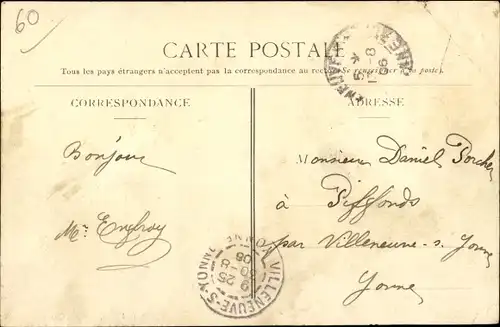 60
CARTE POSTALE
Tous les pays étrangers n'acceptent pas la correspondance au recto (Se renseigner à la poste)
CORRESPONDANCE
ADRESSE
Bonjour
Monsieur Daniel Porcher
à Piffonds
par Villeneuve-s. Yonne
Yonne
VILLENEUVE-S-YONNE
YONNE